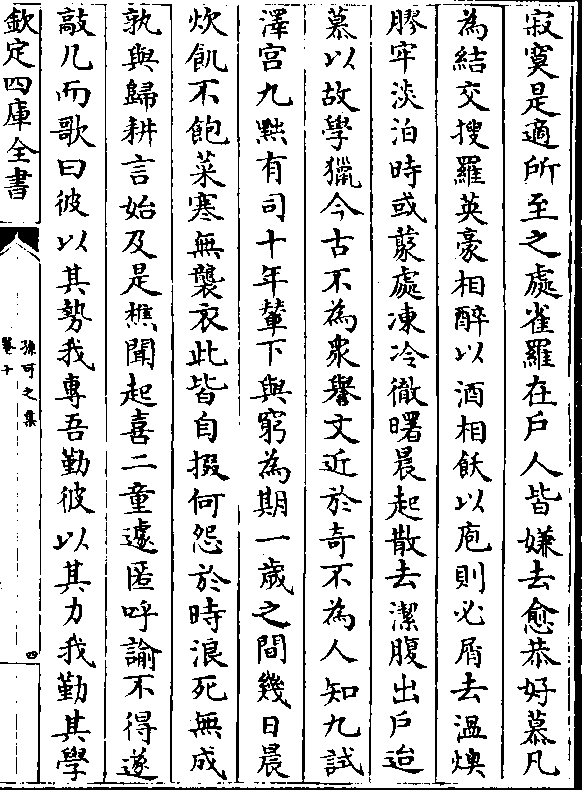 寂寞是適所至之處雀羅在戶人皆嫌去愈恭好慕凡
為結交搜羅英豪相醉以酒相飫以庖則必屑去溫燠
膠牢淡泊時或蔂處凍冷徹曙晨起散去潔腹出戶迨
慕以故學獵今古不為衆譽文近於奇不為人知九試
澤宮九黜有司十年輦下與窮為期一歲之間幾日晨
炊飢不飽菜寒無襲衣此皆自掇何怨於時浪死無成
孰與歸耕言始及是樵聞起喜二童遽匿呼諭不得遂
敲几而歌曰彼以其勢我專吾勤彼以其力我勤其學
欽定四庫全書
孫可之集
卷十
四